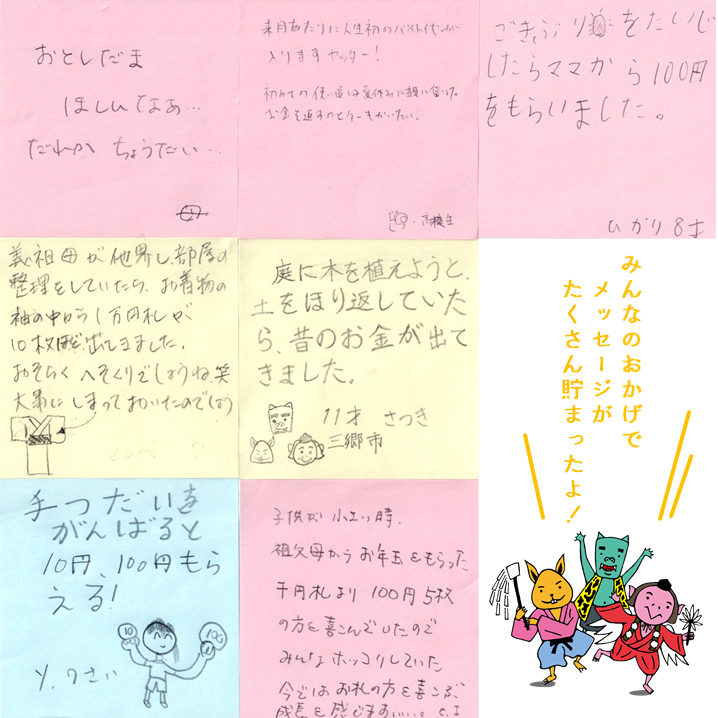 おとしだま
ほしいなぁ…
だれか ちょうだい…
母
来月あたりに人生初のバイト代が
入ります ヤッター!
初めての使い道は夏休みに親に借りた
お金を返すのとケーキがいたい。
高校生
ごきぶりをたいじ
したらママから100円
をもらいました。
ひかり 8才
義祖母が他界し、部屋の
整理をしていたら、お着物の
袖の中から1万円札が
10枚ほど出てきました。
おそらくへそくりでしょうね、笑
大事にしまっておいたのでしょう
庭に木を植えようと、
土をほり返していた
ら、昔のお金が出て
きました。
11才 さつき
三郷市
みんなのおかげで
メッセージが
たくさん貯まったよ!
手つだいを
がんばると
10円、100円もら
える!
10
100
Y. 7さい
子供が小エい時、
祖父母からお年玉をもらった
千円札より 100円5枚
の方を喜こんでいたので
みんなホッコリしていた
今ではお札の方を喜こぶ
成長を感じます C.I